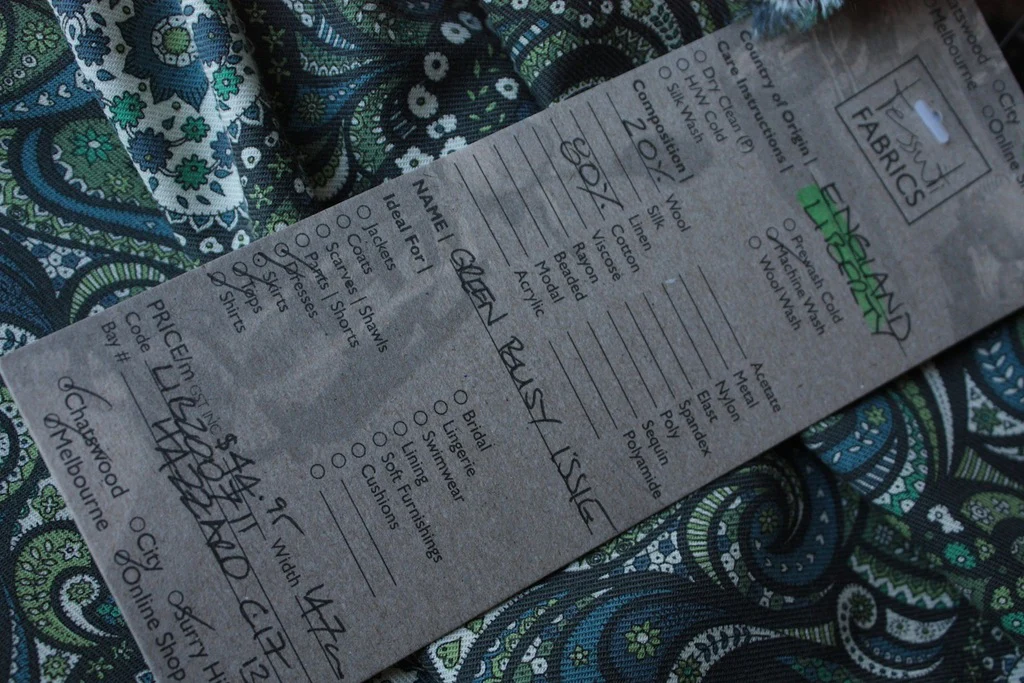 Chatswood City
Melbourne Online S
Tessuti
FABRICS
Country of Origin | ENGLAND
Care Instructions | LIBERTY
Dry Clean (P) Prewash Cold
H/W Cold Machine Wash
Silk Wash Wool Wash
Composition |
20% Wool Acetate
Silk Metal
Linen Nylon
80% Cotton Elast
Viscose Spandex
Rayon Poly
Beaded Sequin
Modal Polyamide
Acrylic
NAME | GREEN BUSY
Ideal For |
Jackets Bridal
Coats Lingerie
Scarves | Shawls Swimwear
Pants | Shorts Lining
Dresses Soft Furnishings
Skirts Cushions
Tops
Shirts
PRICE/m GST INC $44.95 Width 147c
Code
Bay #
Chatswood City Surry Hi
Melbourne Online Shop